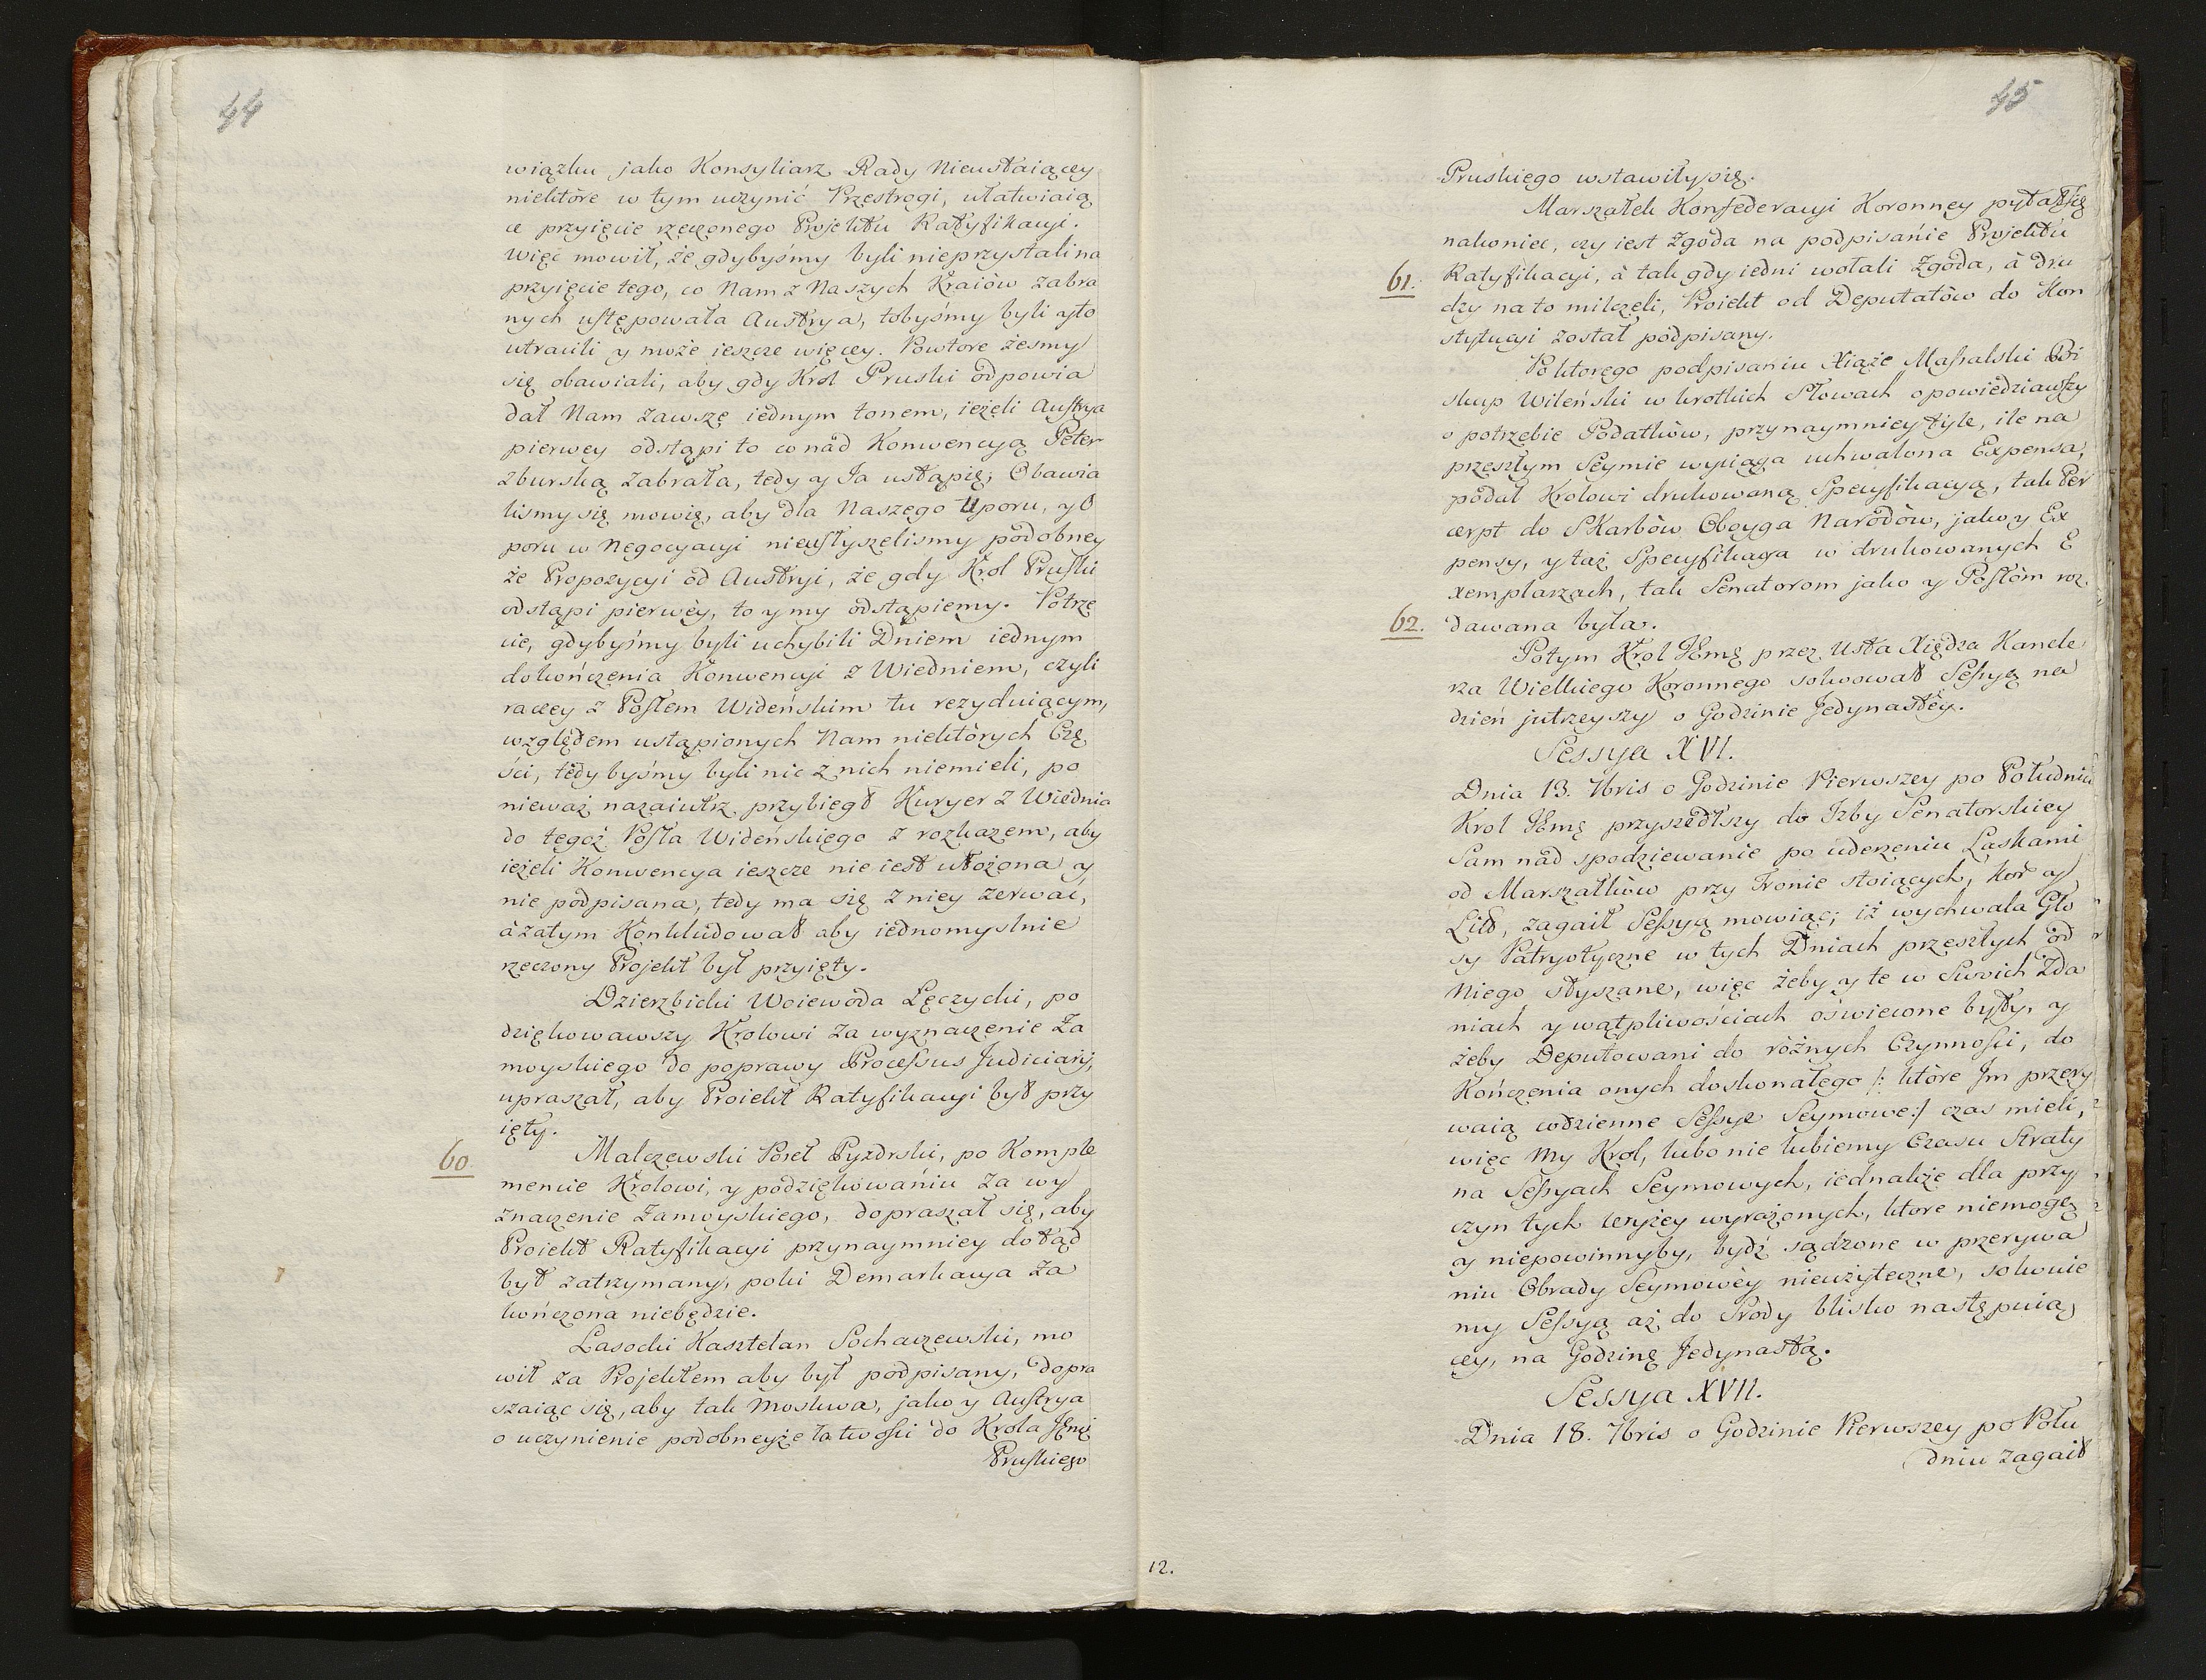 44
wiązku jako Konsyliarz Rady Nieustaiącey
niektóre w tym uczynić Przestrogi, ułatwiaią
ce przyięcie rzeczonego Projektu Ratyfikacyi.
więc mowił, że gdybyśmy byli nieprzystali na
przyięcie tego, co Nam z Naszych Kraiów zabra
nych ustępowała Austrya, tobyśmy byli y to
utracili y może ieszcze więcey. Powtore żesmy
się obawiali, aby gdy Krol Pruski odpowia
dał Nam zawsze iednym tonem, ieżeli Austrya
pierwey odstąpi to co nad Konwencyą Peter
zburską zabrała, tedy y Ja ustąpię; Obawia
lismy się mowię, aby dla Naszego Uporu, y O
poru w Negocyacyi nieusłyszelismy podobney
że Propozycyi od Austryi, że gdy Krol Pruski
odstąpi pierwey, to y my odstąpiemy. Potrze
cie, gdybyśmy byli uchybili Dniem iednym
dokończenia Konwencyi z Wiedniem, czyli
raczey z Posłem Wideńskim tu rezyduiącym,
względem ustąpionych Nam niektórych Czę
ści, tedy byśmy byli nic z nich niemieli, po
nieważ nazaiutrz przybiegł Kuryer z Wiednia
do tegoż Posła Wideńskiego z rozkazem, aby
ieżeli Konwencya ieszcze nie iest ułożona y
nie podpisana, tedy ma się z niey zerwać,
à zatym Konkludował aby iednomyslnie
rzeczony Projekt był przyięty.
Dzierzbicki Woiewoda Łęczycki, po
dziękowawszy Krolowi za wyznaczenie Za
moyskiego do poprawy Processus Judiciarij,
upraszał, aby Proiekt Ratyfikacyi był przy
ięty.
60. Malczewski Poseł Pyzdrski, po Komple
mencie Krolowi, y podziękowańiu za wy
znaczenie Zamoyskiego, dopraszał się, aby
Proiekt Ratyfikacyi przynaymniey dotąd
był zatrzymany, poki Demarkacya za
kończona niebędzie.
Lasocki Kasztelan Sochaczewski, mo
wił za Projektem aby był podpisany, dopra
szaiąc się, aby tak Moskwa, jako y Austrya
o uczynienie podobneyże łatwości do Krola Jmci
Pruskiego
45
Pruskiego wstawiły się.
Marszałek Konfederacyi Koronney pytał się
nakoniec, czy iest Zgoda na podpisańie Projektu
61. Ratyfikacyi, à tak gdy iedni wołali Zgoda, à dru
dzy na to milczeli, Proiekt od Deputatów do Kon
stytucyi został podpisany.
Po ktorego podpisaniu Xiąże Massalski Bi
skup Wileński w krotkich Słowach opowiedziawszy
o potrzebie Podatków, przynaymniey tyle, ile na
przeszłym Seymie wyciąga uchwalona Expensa,
podał Krolowi drukowaną Specyfikacyą, tak Per
cerpt do Skarbów Oboyga Narodów, jako y Ex
pensy, y taż Specyfikacya w drukowanych E
xemplarzach, tak Senatorom jako y Posłom roz
62. dawana była.
Potym Krol Jmć przez Usta Xiędza Kancle
rza Wielkiego Koronnego solwował Sessyą na
dzień jutrzeyszy o Godzinie Jedynastey.
Sessya XVI.
Dnia 13. 7bris o Godzinie Pierwszey po Południu
Krol Jmć przyszedłszy do Izby Senatorskiey
Sam nad spodziewanie po uderzeniu Laskami
od Marszałków przy Tronie stoiących, Kor y
Litt, zagaił Sessyą mowiąc; iż wychwala Gło
sy Patryotyczne w tych Dniach przeszłych od
Niego słyszane, więc żeby y te w Swoich Zda
niach y wątpliwościach oświecone były, y
żeby Deputowani do różnych Czynności, do
Kończenia onych doskonałego /: które Jm przery
waią codzienne Sessye Seymowe:/ czas mieli,
więc My Krol, lubo nie lubiemy Czasu Straty
na Sessyach Seymowych, iednakże dla przy
czyn tych wyżey wyrażonych, ktore niemogą
y niepowinnyby, bydź sądzone w przerywa
niu Obrady Seymowey nieużyteczne, solwuie
my Sessyą aż do Srody blisko następuią
cey, na Godzinę Jedynastą.
Sessya XVII.
Dnia 18. 7bris o Godzinie Pierwszey po Połu
dniu zagaił
12.